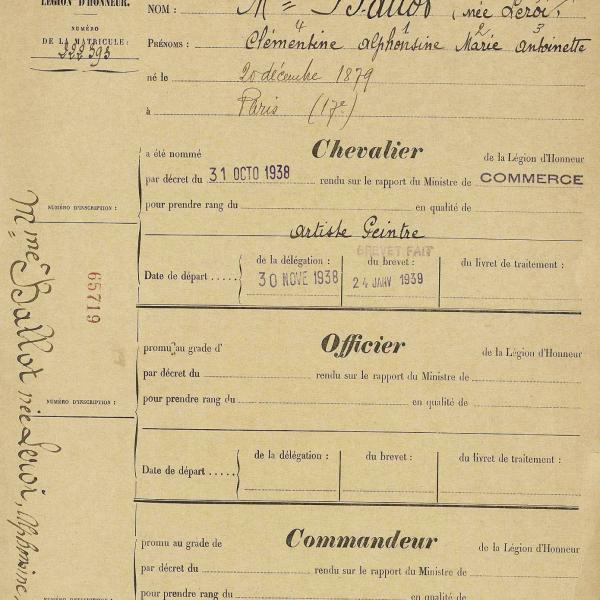 LÉGION D'HONNEUR.
NUMÉRO
DE LA MATRICULE:
222393
NOM : Mme Ballot (née Leroi)
4 1 2 3
PRÉNOMS : Clémentine Alphonsine Marie Antoinette
né le 20 décembre 1879
à Paris (17e)
a été nommé Chevalier de la Légion d'Honneur
par décret du 31 OCTO 1938 rendu sur le rapport du Ministre de COMMERCE
NUMÉRO D'INSCRIPTION :
pour prendre rang du en qualité de
Artiste Peintre
BREVET FAIT
Date de départ ..... de la délégation : du brevet : du livret de traitement :
30 NOVE 1938 24 JANV 1939
65719
Mme Ballot née Leroi, Alphonsine,
promu au grade d' Officier de la Légion d'Honneur
par décret du rendu sur le rapport du Ministre de
NUMÉRO D'INSCRIPTION :
pour prendre rang du en qualité de
Date de départ ..... de la délégation : du brevet : du livret de traitement :
promu au grade de Commandeur de la Légion d'Honneur
par décret du rendu sur le rapport du Ministre de
NUMÉRO D'INSCRIPTION :
pour prendre rang du en qualité de